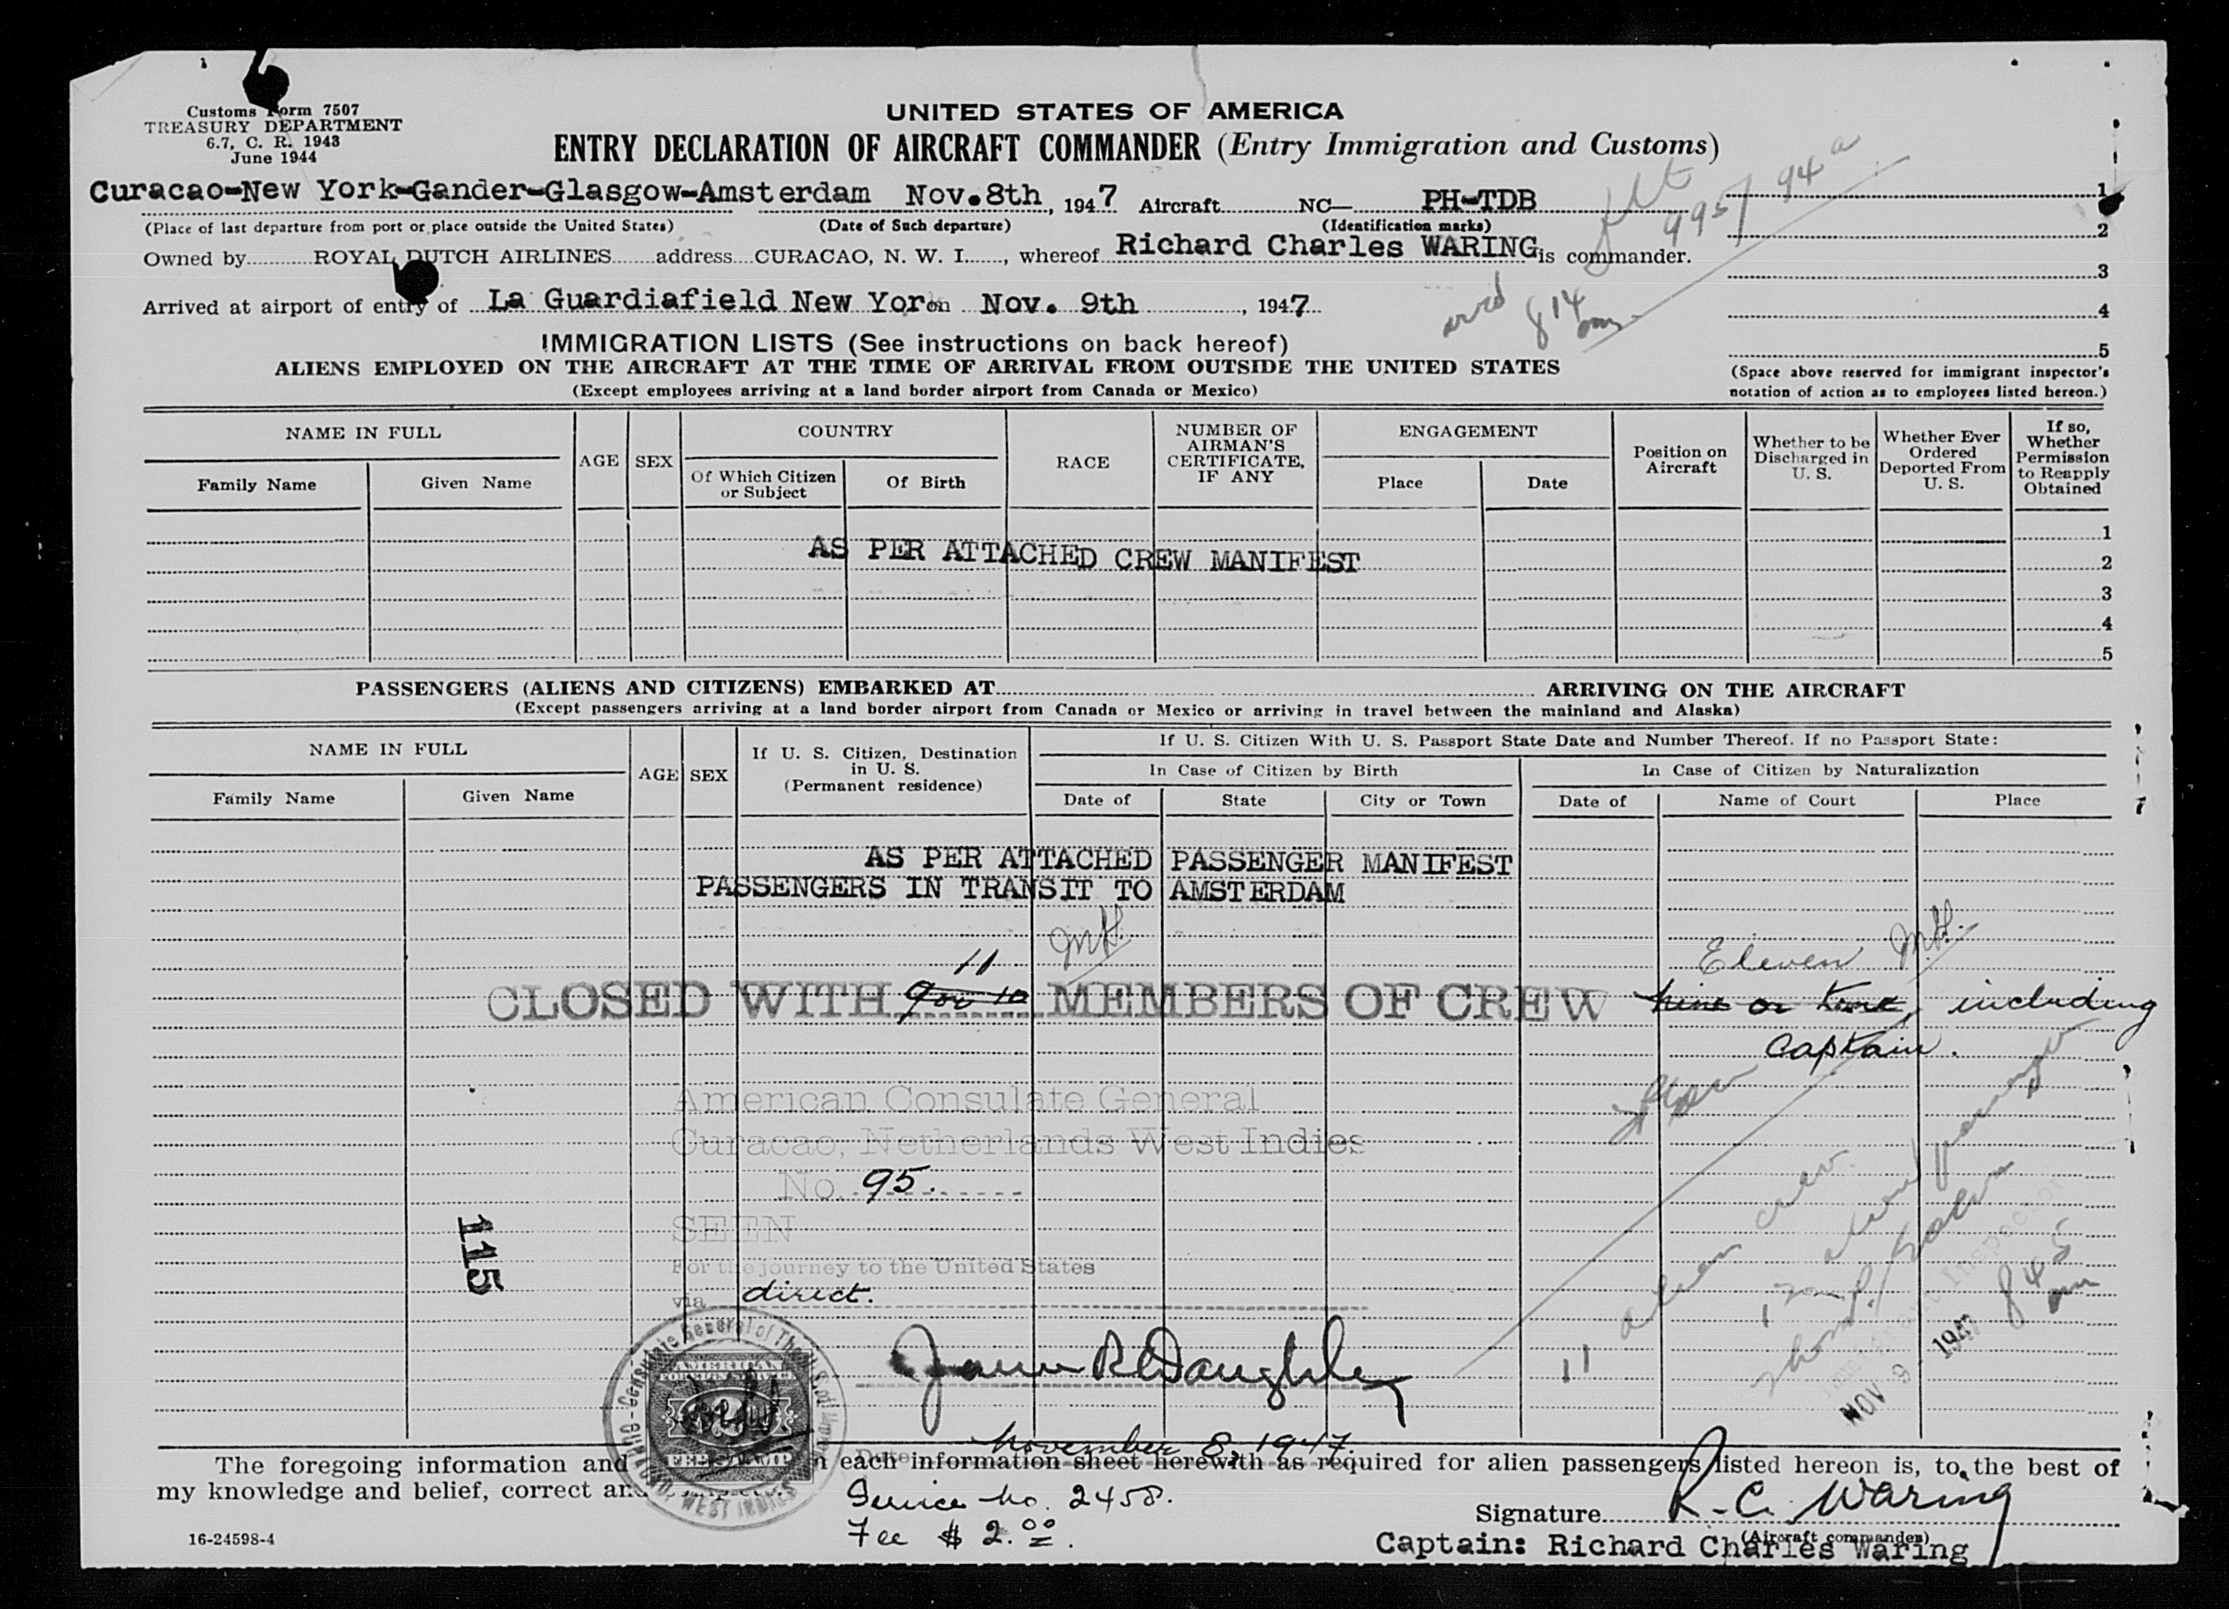 Customs Form 7507
TREASURY DEPARTMENT
6.7, C. R. 1943
June 1944
UNITED STATES OF AMERICA
ENTRY DECLARATION OF AIRCRAFT COMMANDER (Entry Immigration and Customs)
Curacao-New York-Gander-Glasgow-Amsterdam Nov.8th, 1947 Aircraft NC— PH-TDB
(Place of last departure from port or place outside the United States) (Date of Such departure) (Identification marks)
94 a
Owned by ROYAL DUTCH AIRLINES address CURACAO, N. W. I., whereof Richard Charles WARING is commander.
Arrived at airport of entry of La Guardiafield New Yor on Nov. 9th, 1947
arrd 814 am
1
2
3
4
5
(Space above reserved for immigrant inspector's
notation of action as to employees listed hereon.)
IMMIGRATION LISTS (See instructions on back hereof)
ALIENS EMPLOYED ON THE AIRCRAFT AT THE TIME OF ARRIVAL FROM OUTSIDE THE UNITED STATES
(Except employees arriving at a land border airport from Canada or Mexico)
NAME IN FULL
Family Name
Given Name
AGE
SEX
COUNTRY
Of Which Citizen or Subject
Of Birth
RACE
NUMBER OF AIRMAN'S CERTIFICATE, IF ANY
ENGAGEMENT
Place
Date
Position on Aircraft
Whether to be Discharged in U. S.
Whether Ever Ordered Deported From U. S.
If so, Whether Permission to Reapply Obtained
AS PER ATTACHED CREW MANIFEST
1
2
3
4
5
PASSENGERS (ALIENS AND CITIZENS) EMBARKED AT ARRIVING ON THE AIRCRAFT
(Except passengers arriving at a land border airport from Canada or Mexico or arriving in travel between the mainland and Alaska)
NAME IN FULL
Family Name
Given Name
AGE
SEX
If U. S. Citizen, Destination in U. S. (Permanent residence)
If U. S. Citizen With U. S. Passport State Date and Number Thereof. If no Passport State:
In Case of Citizen by Birth
Date of
State
City or Town
In Case of Citizen by Naturalization
Date of
Name of Court
Place
AS PER ATTACHED PASSENGER MANIFEST
PASSENGERS IN TRANSIT TO AMSTERDAM
11
Eleven
CLOSED WITH 9 or 10 MEMBERS OF CREW nine or tene, including
Captain.
American Consulate General
Curacao, Netherlands West Indies
No. 95.
SEEN
For the journey to the United States
via direct.
115
11 alien crew
845 am
Immigrant Inspector
NOV 9 - 1947
AMERICAN
FEE STAMP
Date November 8, 1947.
The foregoing information and each information sheet herewith as required for alien passengers listed hereon is, to the best of
my knowledge and belief, correct and
Service No. 2458.
Fee $ 2.00.
Signature R. C. Waring
(Aircraft commander)
Captain: Richard Charles Waring
16-24598-4